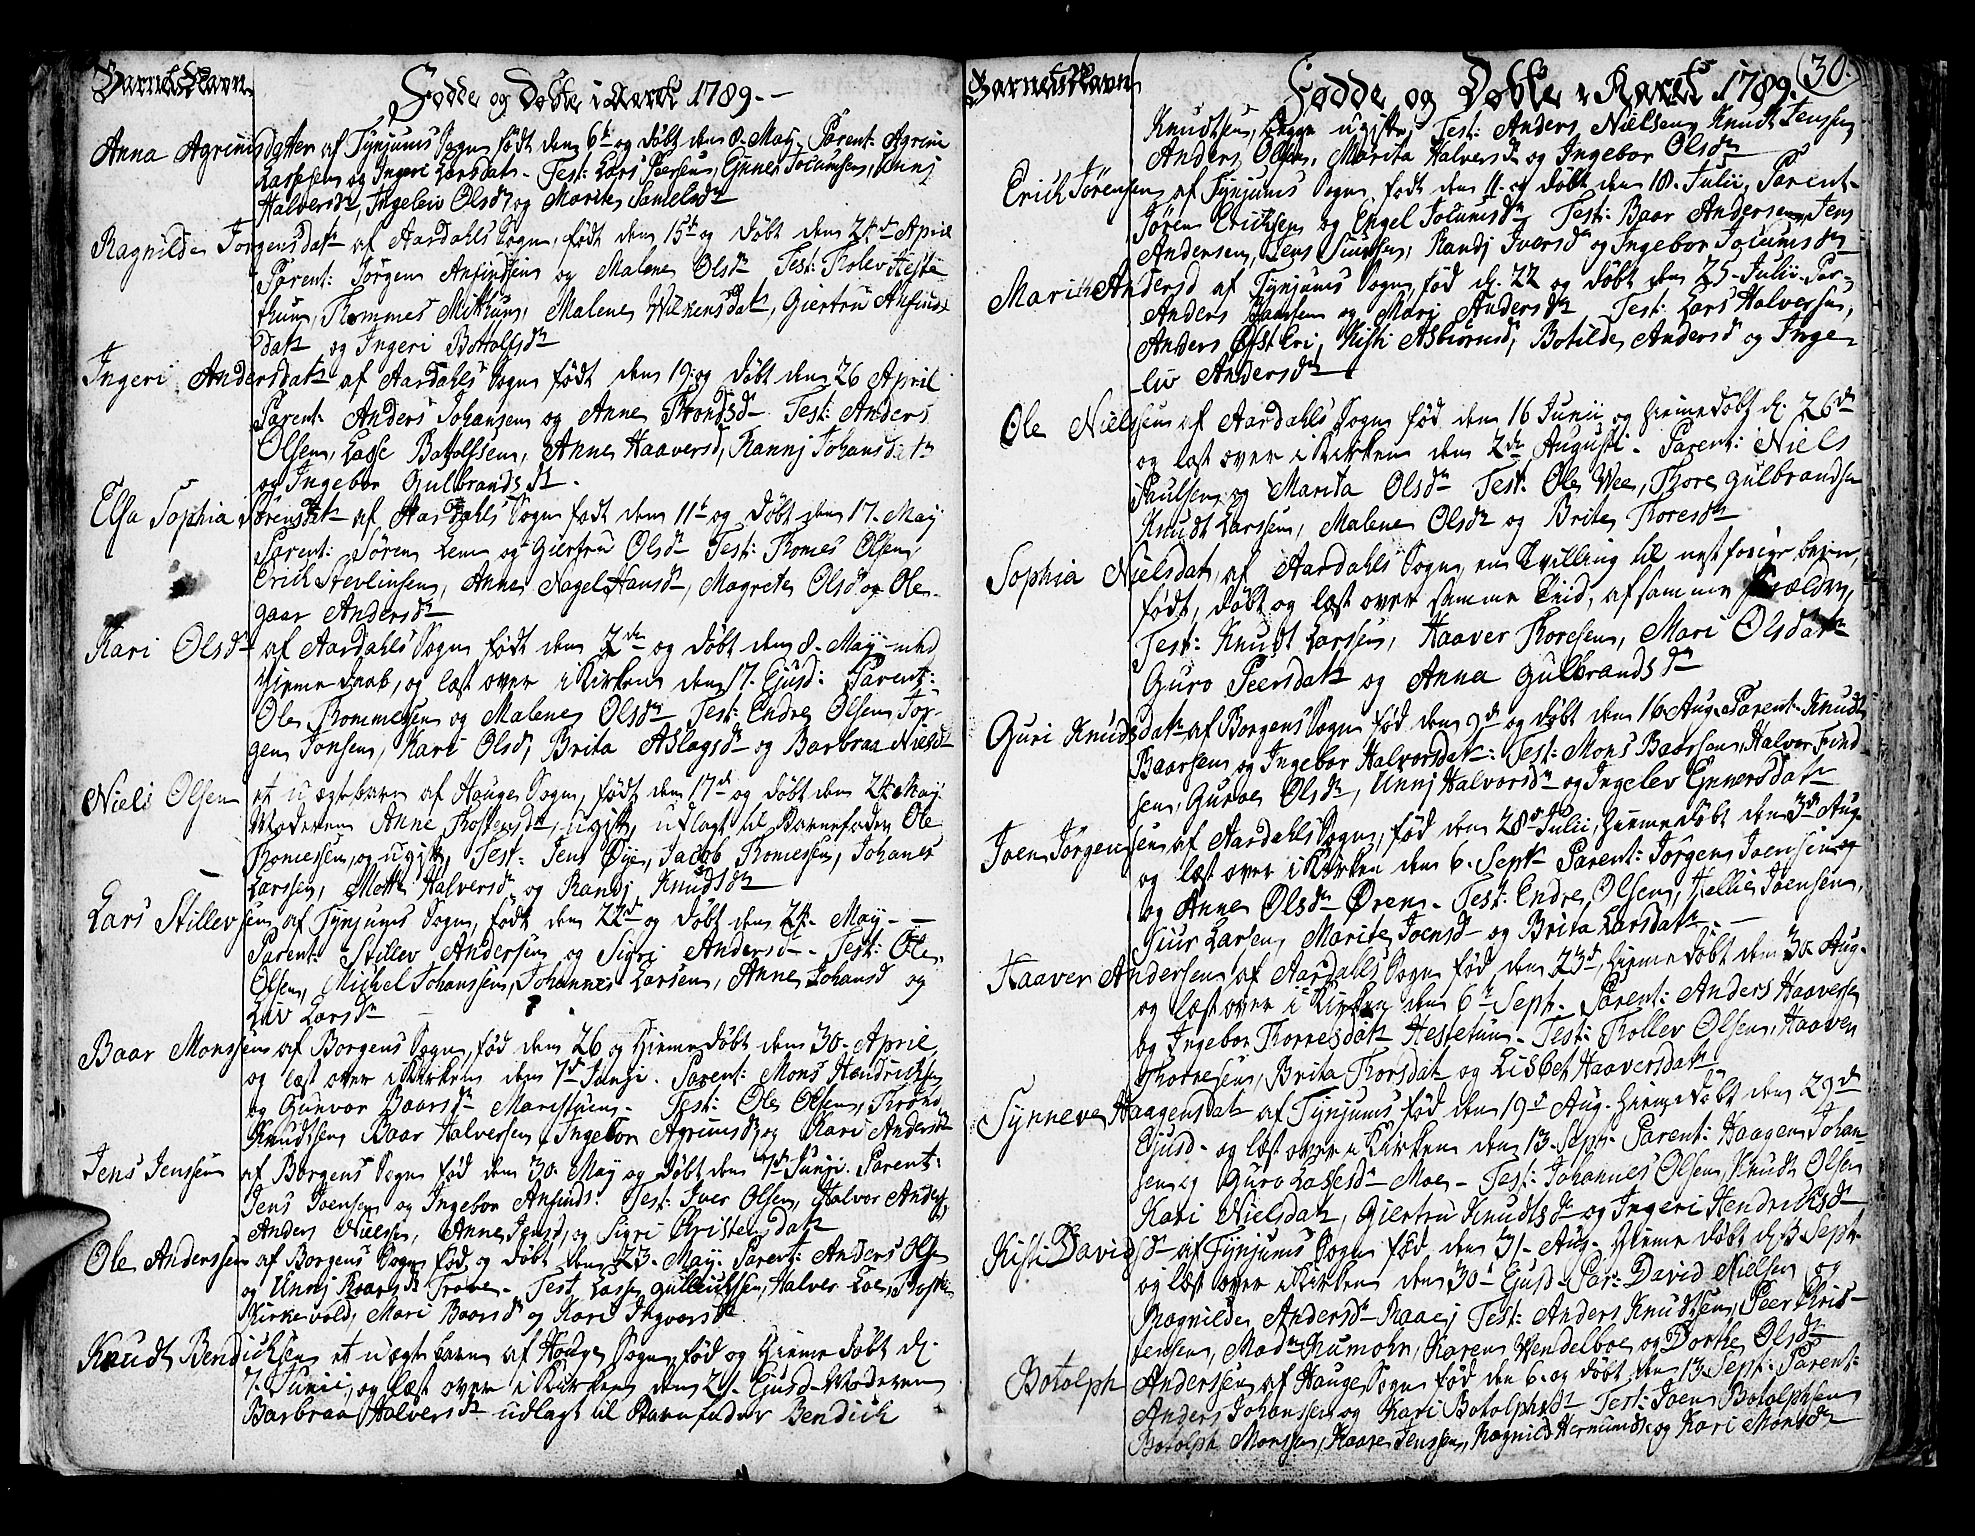 Barnets Navn
Fødde og Døbte i Aaret 1789.
Anna Agrimsdatter af Tynjums Sogn født den 6t og døbt den 8. May, Parent: Agrim
Larssen og Ingeri Larsdatr. Test: Lars Peersen, Enner Joransen, Unni
Halversdr, Ingeleiv Olsdr og Marite Samelsdr
Ragnilde Jorgensdatr af Aardahls Sogn, født den 15t og døbt den 24de April
Parent: Jørgen Anfindsen og Malene Olsdr Test: Tolev Heste
thun, Thommes Mitthun, Malene Wilkensdatr, Giertru Anfinds
datr og Ingeri Bottolfsdr
Ingeri Andersdatr af Aardahls Sogn født den 19 og døbt den 26 April
Parent: Anders Johansen og Anne Trondsdr Test: Anders
Olsen, Lasse Botolfsen, Anne Haaversd, Rannj Johansdatr
og Ingebor Gulbrandsdr.
Elsa Sophia Sørensdatr af Aardahls Sogn født den 11t og døbt den 17. May
Parent: Søren Lem og Giertru Olsdr Test: Thomes Olsen,
Erich Stevlinsen, Anne Nagel Hansdr, Magrete Olsd og Ole-
gaar Andersdr
Kari Olsdr af Aardahls Sogn født den 2de og døbt den 8. May med
Hieme Daab, og læst over i Kirken den 17. Ejusd: Parent:
Ole Thommesen og Malene Olsdr Test: Endre Olsen, Jør-
gen Jonsen, Kari Olsd, Brita Aslagsdr og Barbraa Nielsdr
Niels Olsen et uægte barn af Hauge Sogn, født den 17d og døbt den 24 May
Moderen Anne Thostensdr, ugift, udlagt til Barnefader Ole
Thomessen, og ugift, Test: Jens Øye, Jacob Thomessen, Johanes
Larssen, Motte Halversdr og Randi Knudsdr
Lars Stillevsen af Tynjums Sogn, født den 22d og døbt den 24. May.
Parent: Stillev Andersen og Sigri Andersdr. Test: Ole
Olsen, Michel Johanssen, Johannes Larsen, Anne Johansd og
Liv Larsdr
Baar Monssen af Borgens Sogn, fød den 26 og Hieme døbt den 30. Aprill
og læst over i Kirken den 7d Junji. Parent: Mons Hendrichsen
og Gunvor Baarsdr Maristuen. Test: Ole Olsen, Trond
Knudssen, Baar Halversen, Ingebor Agrimsd, og Kari Andersdr
Jens Jenssen af Borgens Sogn fød den 30. May og døbt den 7d Junji. Parent:
Jens Joensen og Ingebor Anfinds. Test: Iver Olsen, Halvor Anders,
Anders Nielsen, Anne Jensd, og Sigri Christensdatr
Ole Anderssen af Borgens Sogn fød og døbt den 23. May. Parent: Anders Olsen
og Unnj Baarsdr Trave. Test: Lasse Gullichsen, Halver Loe, Thoste
Kirkevold, Mari Baarsdr og Kari Ingvorsdr
Knudt Bendichsen et uægte barn af Hauge Sogn, fød og Hieme døbt d.
7. Junii, og læst over i Kirken den 21. Ejusd. Moderen
Barbraa Halversdr udlagt til Barnfader Bendich
Barnets Navn
Fødde og Døbte i Aaret 1789. 30.
Knudtsen, begge ugifte, Test: Anders Nielsen, Knudt Jensen
Anders Olsen, Marita Halversdr og Ingebor Olsdr
Erich Jørensen af Tynjums Sogn, født den 11. og døbt den 18. Julii, Parent.
Jøren Erichsen og Engel Joramsdr Test: Baar Andersen, Jens
Andersen, Jens Simssen, Randj Iversdr og Ingebor Joramsdr
Marite Andersd af Tynjums Sogn fød d. 22 og døbt den 25 Julii. Par-
Anders Hansen og Mari Andersdr Test: Lars Halversen,
Anders Øfst Eri, Kisti Asbiornsd, Botilde Andersd og Inge-
liv Andersdr
Ole Nielssen af Aardahls Sogn fød den 16 Junii og hieme døbt d. 26de
og læst over i Kirken den 2de Augusti. Parent: Niels
Paulsen og Marita Olsdr Test: Ole Wee, Thore Gulbrandsen
Knudt Larssen, Malene Olsdr og Brite Thoresdr
Sophia Nielsdatr af Aardahls Sogn, en Tvilling til næst forige barn,
født, døbt og læst over samme Tiid, af samme Forældre,
Test: Knudt Larssen, Haaver Thoresen, Mari Olsdatr
Guro Peersdatr og Anna Gulbrandsdr
Guri Knudsdatr af Borgens Sogn fød den 9d og døbt den 16 Aug. Parent: Knudt
Baarsen og Ingebor Halvorsdatr: Test: Mons Baarsen, Halvor Find-
sen, Guroe Olsdr, Unnj Halvorsdr og Ingelev Ennersdatr
Joen Jørgensen af Aardalls Sogn, fød den 28de Julii, hieme døbt den 3de Aug.
og læst over i Kirken den 6. Septr Parent: Jørgen Joensen og
og Anne Olsdr Øren. Test: Endre Olsen, Hellie Joensen,
Giur Larsen, Marite Joensdr og Brita Larsdatr.
Haaver Andersen af Aardalls Sogn fød den 23d, hieme døbt den 30. Aug.
og læst over i Kirken den 6te Sept. Parent: Anders Haaversen
og Ingebor Thorresdatr Hestetun. Test: Thollev Olsen, Haaven
Thorresen, Brita Thorsdatr og Lisbet Haaversdatr.
Synneve Haagensdatr af Tynjums fød den 19d Aug. hieme døbt den 29de
Ejusd. og læst over i Kirken den 13. Sept. Parent: Haagen Johan-
sen og Guro Lassesdr Moe. Test: Johannes Olsen, Knudt Olsen
Kari Nielsdatr, Giertru Knudtsdr og Ingeri Hendrichsdr
Kisti Davidsdr af Tynjums Sogn fød den 31. Aug. Hieme døbt d. 3 Sept.
og læst over i Kirken den 30d Ejusd. Par: David Nielsen og
Ragnilde Andersdr Raae; Test: Anders Knudtsen, Peer Chris-
tensen, Madm Kumohr, Karen Wendelboe og Dorthe Olsdr
Botolph Andersen af Hauge Sogn fød den 6. og døbt den 13. Sept. Parent:
Anders Johanssen og Kari Botolphsdr Test: Joen Botolphsen
Botolph Monssen, Kaare Jenssen, Ragnild Hermundsd og Kari Monsdr